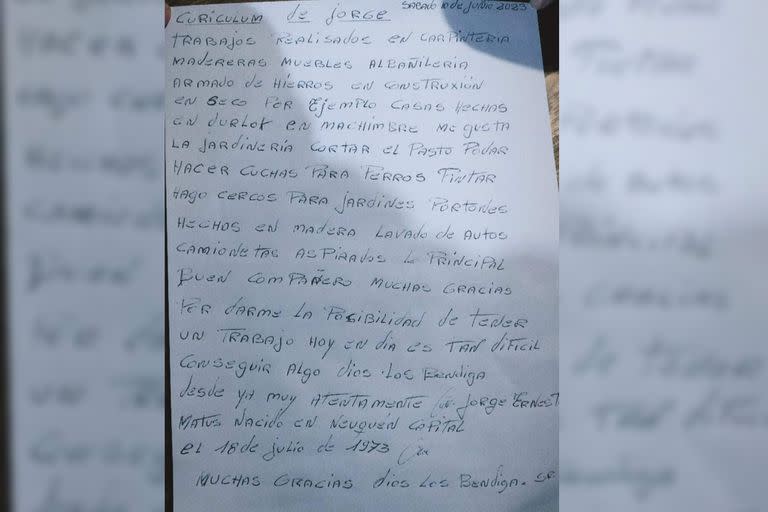 Sabado 10 de junio 2023
CURICULUM de JORGE
TRABAJOS REALISADOS EN CARPINTERIA
MADERERAS MUEBLES ALBAÑILERIA
ARMADO DE HIERROS EN CONSTRUXIÓN
EN SECO POR EJEMPLO CASAS HECHAS
EN DURLOK EN MACHIMBRE ME GUSTA
LA JARDINERÍA CORTAR EL PASTO PODAR
HACER CUCHAS PARA PERROS PINTAR
HAGO CERCOS PARA JARDINES PORTONES
HECHOS EN MADERA LAVADO DE AUTOS
CAMIONETAS ASPIRADOS LO PRINCIPAL
BUEN COMPAÑERO MUCHAS GRACIAS
POR DARME LA POSIBILIDAD DE TENER
UN TRABAJO HOY EN DIA ES TAN DIFICIL
CONSEGUIR ALGO DIOS LOS BENDIGA
desde YA MUY ATENTAMENTE JORGE ERNEST
MATUS NACIDO EN NEUQUÉN CAPITAL
el 18 de julio de 1973
MUCHAS GRACIAS DIOS LOS BENDIGA.